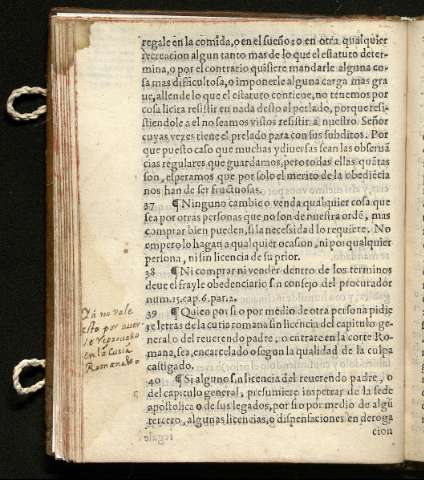 regale en la comida, o en el sueño: o en otra qualquier
recreacion algun tanto mas de lo que el estatuto deter-
mina, o por el contrario quisiere mandarle alguna co-
sa mas dificultosa, o imponerle alguna carga mas gra
ue, allende lo que el estatuto contiene, no tenemos por
cosa licita resistir en nada desto al perlado, porque resi-
stiendole a el no seamos vistos resistir a nuestro Señor
cuyas vezes tiene el prelado para con sus subditos. Por
que puesto caso que muchas y diuersas sean las obseruã
cias regulares que guardamos, pero todas ellas quãtas
son, esperamos que por solo el merito de la obediẽcia
nos han de ser fructuosas.
37 ¶ Ninguno cambie o venda qualquier cosa que
sea por otras personas que no son de nuestra ordẽ, mas
comprar bien pueden, si la necesidad lo requiere. No
empero lo hagan a qualquier ocasion, ni por qualquier
persona, ni sin licencia de su prior.
38 ¶ Ni comprar ni vender dentro de los terminos
deue el frayle obedenciario sin consejo del procurador
num. 15. cap. 6. par. 2.
39 ¶ Quien por si o por medio de otra persona pidie
re letras de la curia romana sin licencia del capitulo ge-
neral o del reuerendo padre, o entrare en la corte Ro-
mana, sea, encarcelado o segun la qualidad de la culpa
castigado.
40 ¶ Si alguno sin licencia del reuerendo padre, o
del capitulo general, presumiere impetrar de la sede
apostolica o de sus legados, por si o por medio de algũ
tercero, algunas licencias, o dispensaciones en deroga
cion
Ya no vale
esto por auer
en la Curia
Romana